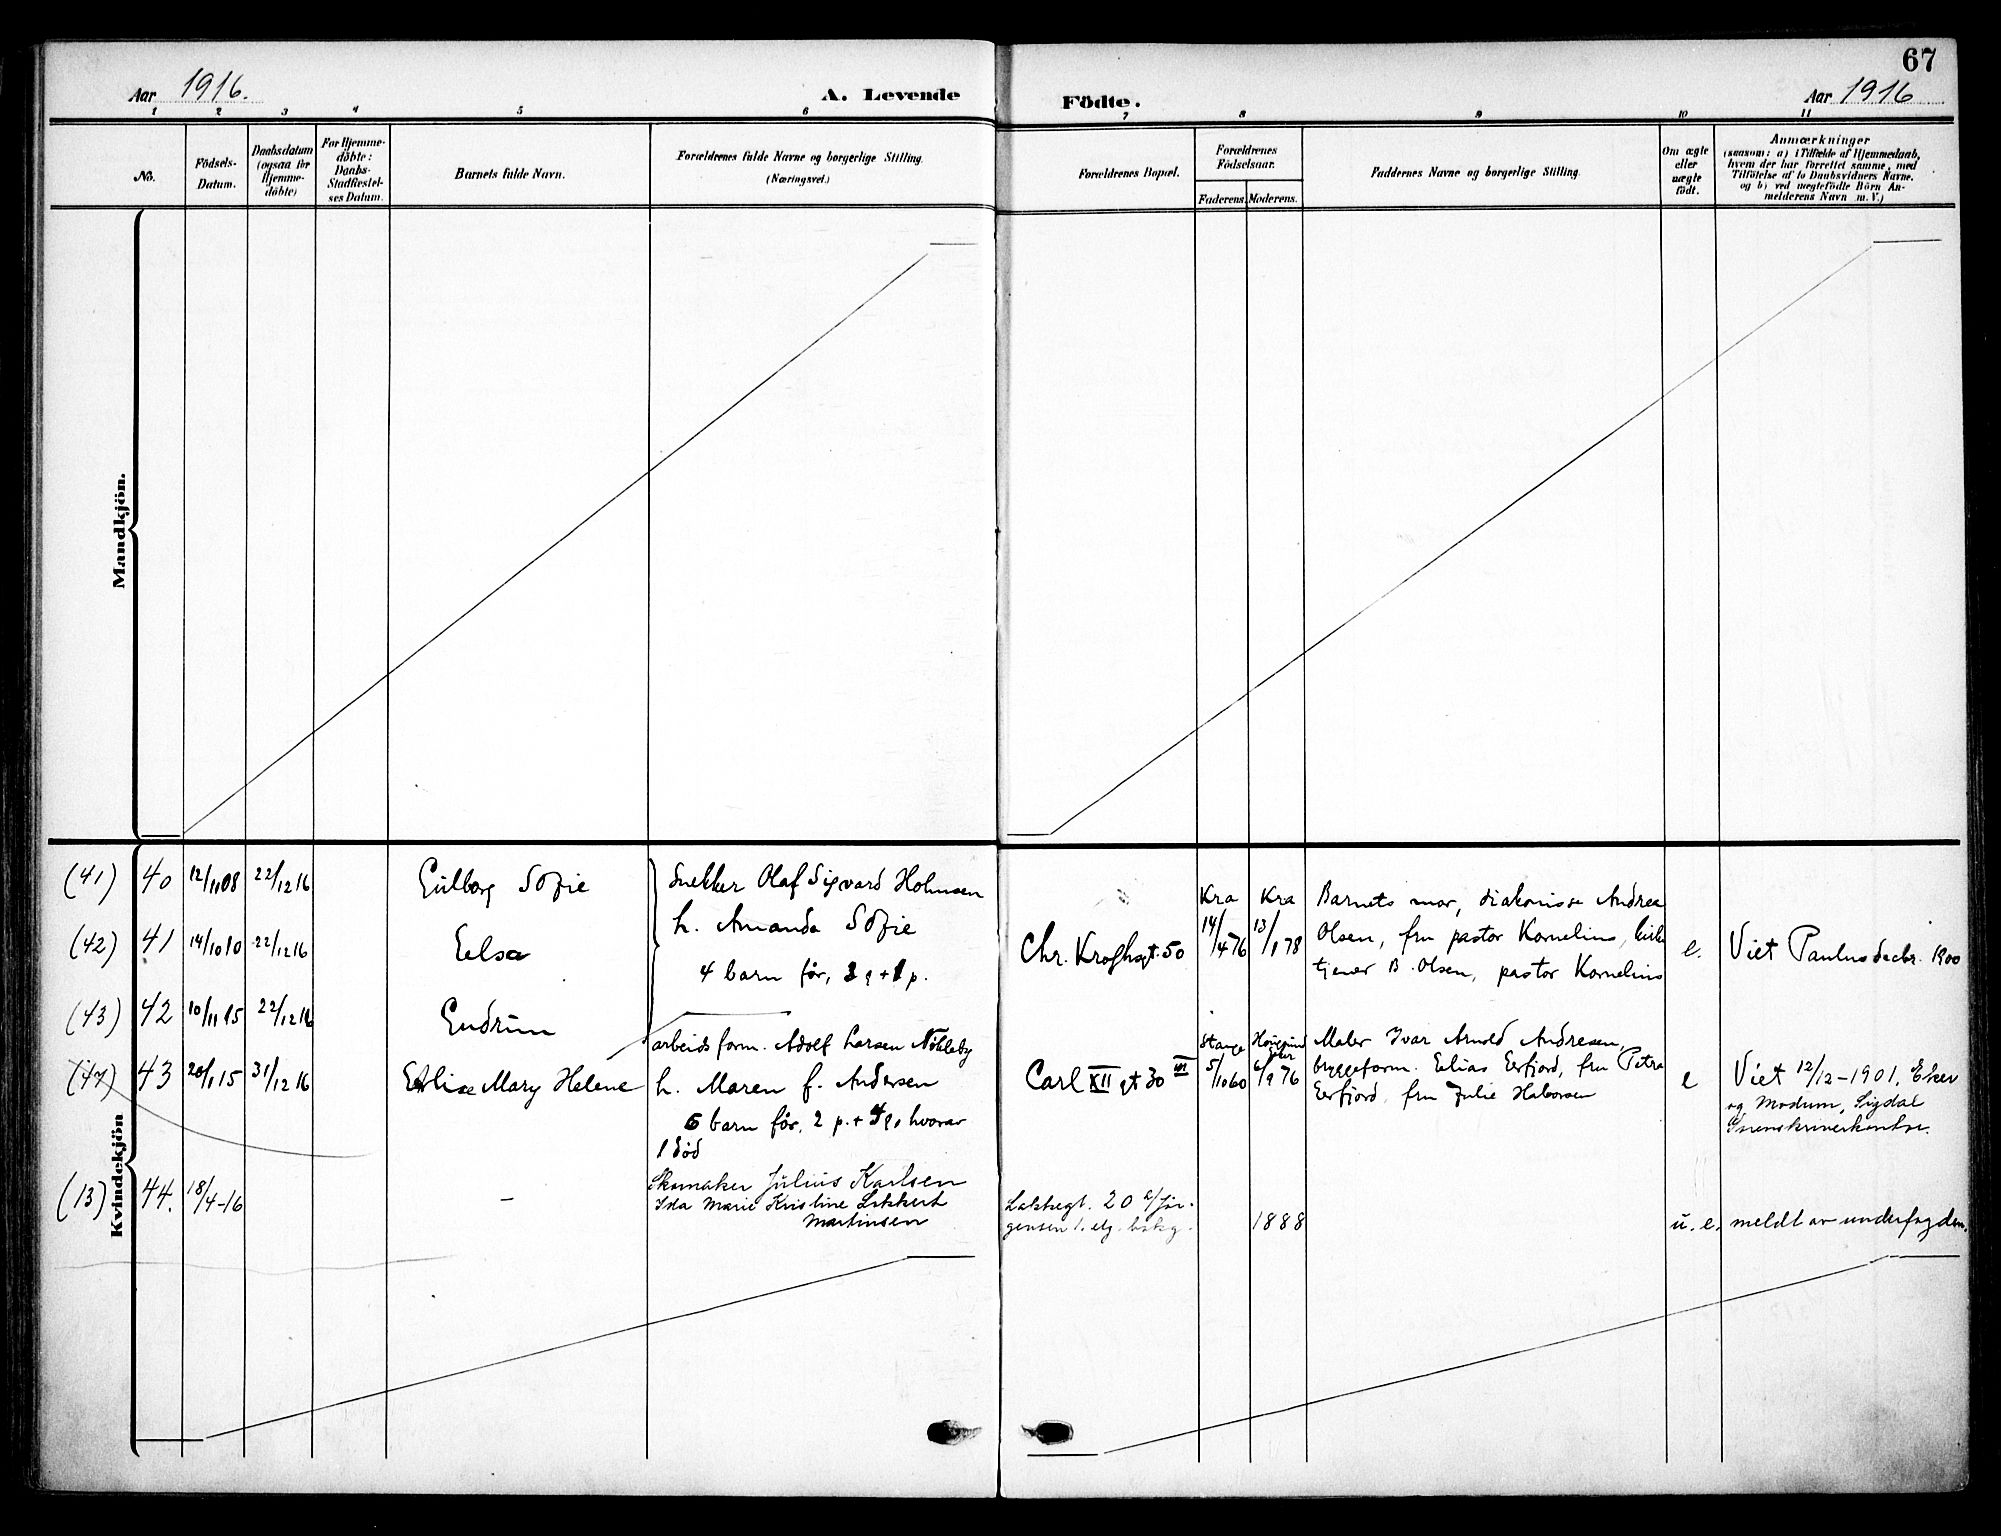 67
Aar 1916.
A. Levende
Födte.
Aar 1916
1 2 3 4 5 6 7 8 9 10 11
No.
Födsels-
Datum.
Daabsdatum
(ogsaa for
Hjemme-
döbte)
For Hjemme-
döbte:
Daabs-
Stadfæstel-
ses Datum.
Barnets fulde Navn.
Forældrenes fulde Navne og borgerlige Stilling.
(Næringsvei.)
Forældrenes Bopæl.
Forældrenes
Födselsaar.
Faderens. Moderens.
Faddernes Navne og borgerlige Stilling.
Om ægte
eller
uægte
födt.
Anmærkninger
(saasom: a) i Tilfælde af Hjemmedaab,
hvem der har forrettet samme, med
Tilföielse af to Daabsvidners Navne.
og b) ved uægtefödte Börn An-
melderens Navn m. V.)
Mandkjön.
Kvindekjön
(41) 40 12/11 08 22/12 16
Sofie
Snekker Olaf Sigvard Holmsen
h. Amanda Sofie
4 barn før,
(42) 41 14/10 10 22/12 16
Chr. Kroghsgt. 50
Kra
14/4 76
Kra
13/1 78
Barnets mor, diakonisse Andrea
Olsen, fru pastor Kornelius,
tjener B. Olsen, pastor Kornelius
e.
Viet Paulus decbr. 1900
(43) 42 10/11 15 22/12 16
(47) 43 20/1 15 31/12 16
Mary Helene
arbeidsform. Adolf Larsen Nökleby
h. Maren f. Andersen
6 barn før, 2 p. + hvorav
1 död
Carl XII gt 30 III
Stange
5/10 60
6/9 76
Maler Ivar Arnold Andresen,
byggeform. Elias Eerfjord, fru Petra
Eerfjord, fru Julie Halvorsen
e
Viet 12/12-1901. Eker
og Modum, Sigdal
(13) 44. 18/4-16
–
Skomaker Julius Karlsen
Ida Marie Kristine
Martinsen
Lakkegt. 20
1. etg.
1888
u. e.
meldt av underfogden.